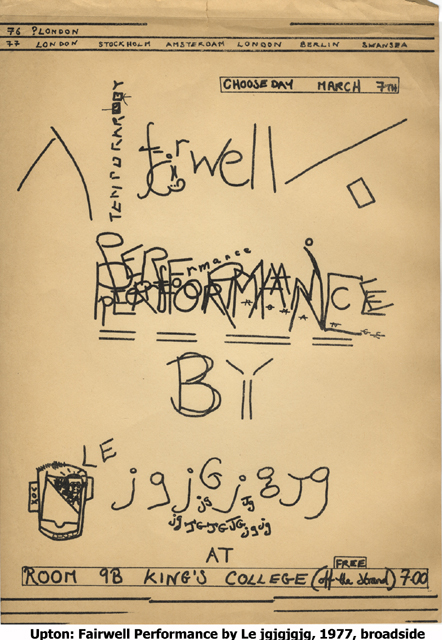 76 ?LONDON
77 LONDON STOCKHOLM AMSTERDAM LONDON BERLIN SWANSEA
CHOOSEDAY MARCH 7TH
TEMPORARY
fairwell
PERFORMANCE
performance
BY
LE
jgjGjgJg
jg Jg
jg JG JG JG jg jg
AT
FREE
ROOM 9B KING'S COLLEGE (off the strand) 7.00
Upton: Fairwell Performance by Le jgjgjgjg, 1977, broadside